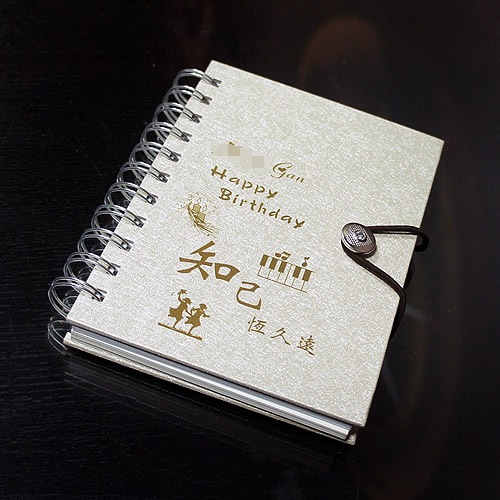 Gan
Happy
Birthday
知己
恆久遠